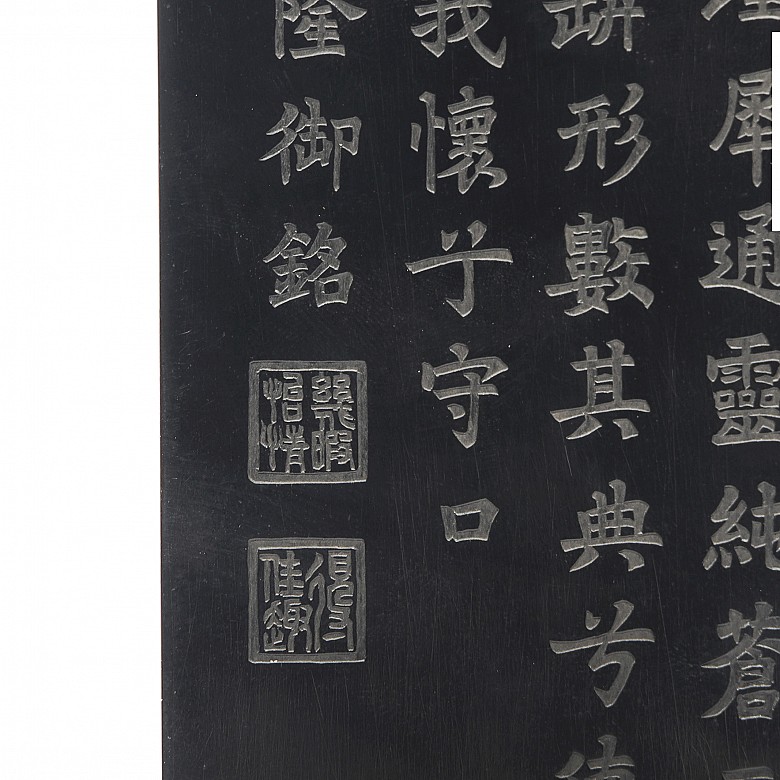 犀通靈純蒼
缾形數其典兮
我懷于守口
隆御銘
幾暇怡情
得佳趣